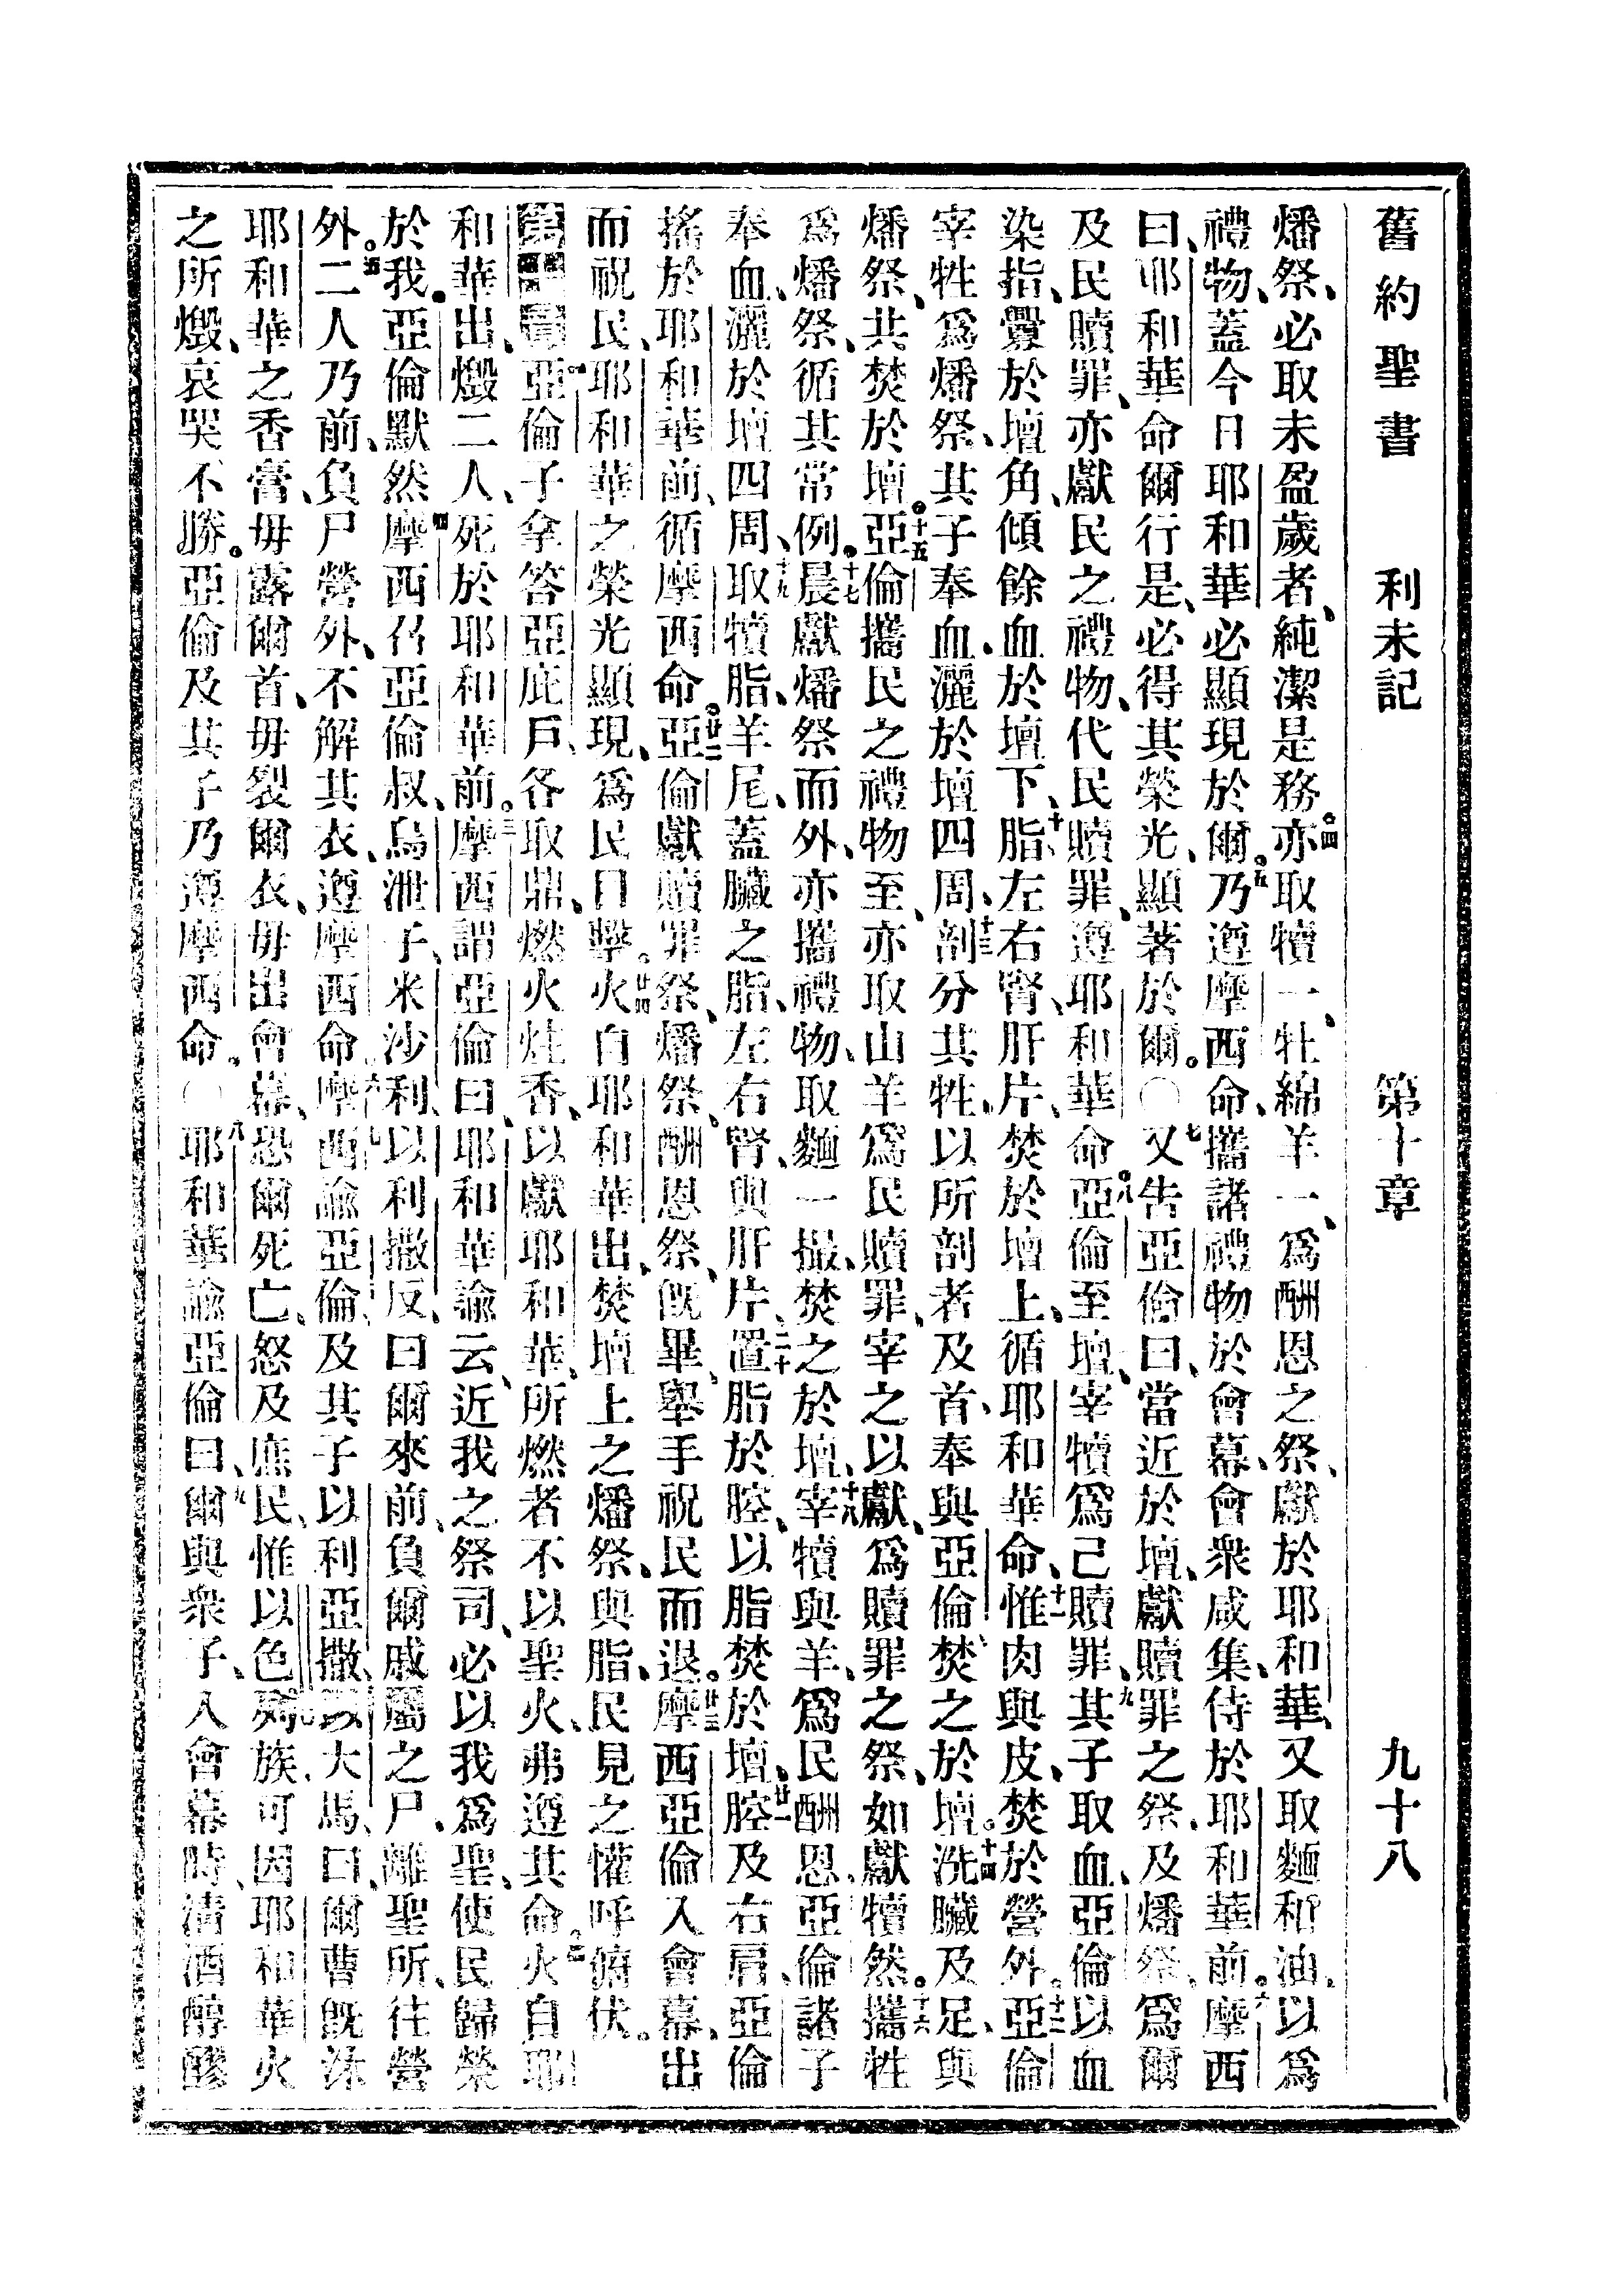 舊約聖書 利未記 第十章 九十八
燔祭、必取未盈歲者、純潔是務。四亦取犢一、牡綿羊一、爲酬恩之祭、獻於耶和華、又取麵和油、以爲
禮物、蓋今日耶和華必顯現於爾。五乃遵摩西命、攜諸禮物於會幕、會衆咸集、侍於耶和華前。六摩西
曰、耶和華命爾行是、必得其榮光、顯著於爾。〇七又告亞倫曰、當近於壇、獻贖罪之祭、及燔祭、爲爾
及民贖罪、亦獻民之禮物、代民贖罪、遵耶和華命。八亞倫至壇、宰犢爲己贖罪、九其子取血、亞倫以血
染指、釁於壇角、傾餘血於壇下、十脂、左右腎、肝片、焚於壇上、循耶和華命、十一惟肉與皮、焚於營外。十二亞倫
宰牲爲燔祭、其子奉血、灑於壇四周、十三剖分其牲、以所剖者及首、奉與亞倫、焚之於壇。十四洗臟及足、與
燔祭、共焚於壇。十五亞倫攜民之禮物至、亦取山羊爲民贖罪、宰之以獻、爲贖罪之祭、如獻犢然。十六攜牲
爲燔祭、循其常例。十七晨獻燔祭而外、亦攜禮物、取麵一撮、焚之於壇、十八宰犢與羊、爲民酬恩、亞倫諸子
奉血、灑於壇四周、十九取犢脂、羊尾、蓋臟之脂、左右腎、與肝片、二十置脂於腔、以脂焚於壇、廿一腔及右肩、亞倫
搖於耶和華前、循摩西命。廿二亞倫獻贖罪祭、燔祭、酬恩祭、旣畢、舉手祝民而退。廿三摩西亞倫入會幕、出
而祝民、耶和華之榮光顯現、爲民目擊。廿四火自耶和華出、焚壇上之燔祭、與脂、民見之懽呼俯伏。
第十章 一亞倫子拿答亞庇戶、各取鼎、燃火炷香、以獻耶和華、所燃者不以聖火、弗遵其命。二火自耶
和華出、燬二人、死於耶和華前。三摩西謂亞倫曰、耶和華諭云、近我之祭司、必以我爲聖、使民歸榮
於我。亞倫默然。四摩西召亞倫叔、烏泄子、米沙利、以利撒反、曰爾來前、負爾戚屬之尸、離聖所、往營
外。五二人乃前、負尸營外、不解其衣、遵摩西命。六摩西諭亞倫、及其子以利亞撒、以大馬、曰、爾曹旣沐
耶和華之香膏、毋露爾首、毋裂爾衣、毋出會幕、恐爾死亡、怒及庶民、惟以色列族、可因耶和華火
之所燬、哀哭不勝。亞倫及其子乃遵摩西命。〇八耶和華諭亞倫曰、九爾與衆子、入會幕時、清酒醇醪